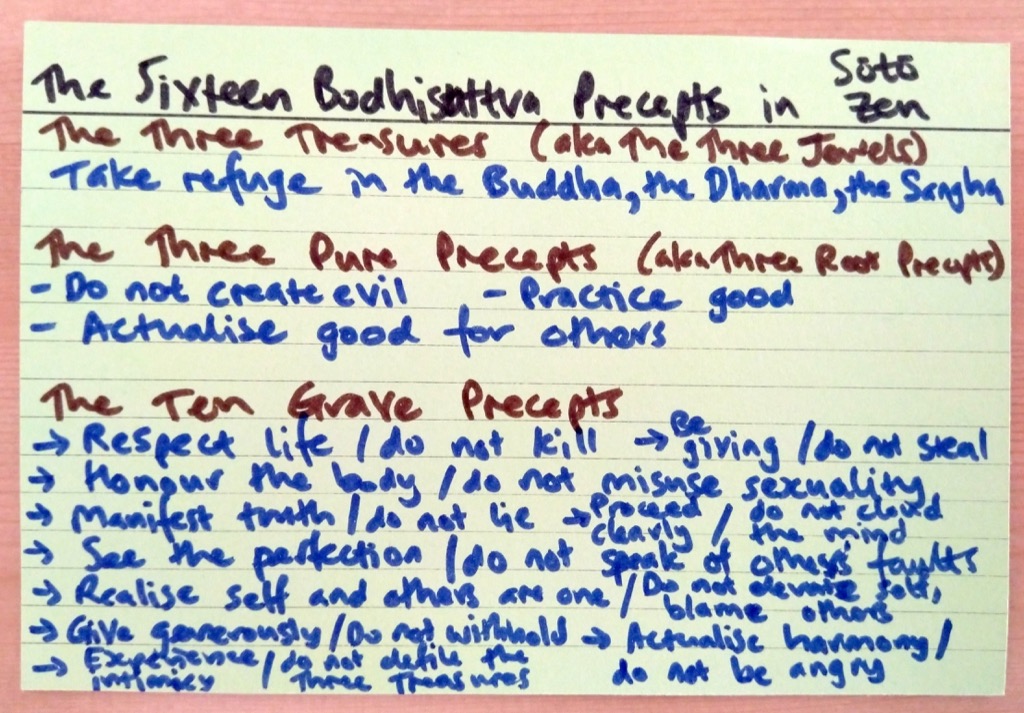 The Sixteen Bodhisattva Precepts in Sōtō Zen
The Three Treasures (aka The Three Jewels)
Take refuge in the Buddha, the Dharma, the Sangha
The Three Pure Precepts (aka Three Root Precepts)
- Do not create evil - Practice good
- Actualise good for others
The Ten Grave Precepts
→ Respect life / do not kill → Be giving / do not steal
→ Honour the body / do not misuse sexuality
→ Manifest truth / do not lie → Proceed clearly / do not cloud the mind
→ See the perfection / do not speak of others faults
→ Realise self and others are one / Do not elevate self, blame others
→ Give generously / Do not withhold → Actualise harmony / do not be angry
→ Experience intimacy / do not defile the Three Treasures